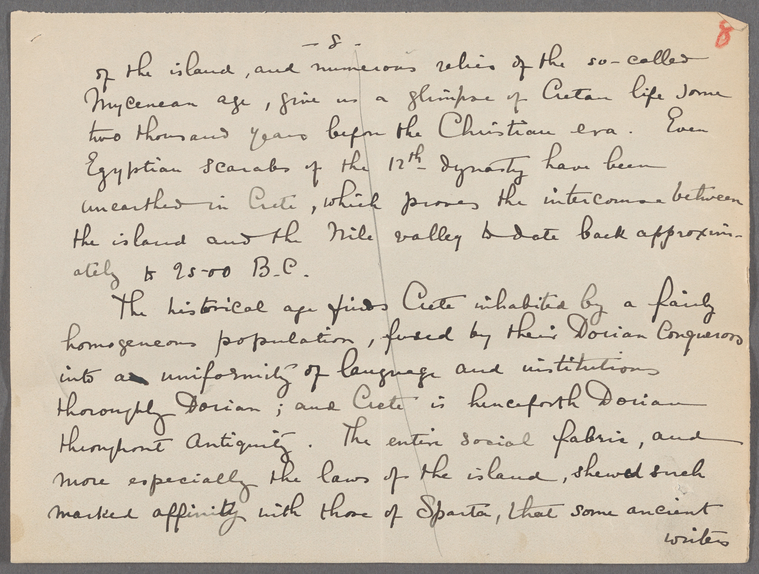 - 8 -
8
of the island, and numerous relics of the so-called
Mycenean age, give us a glimpse of Cretan life some
two thousand years before the Christian era. Even
Egyptian scarabs of the 12th dynasty have been
unearthed in Crete, which proves the intercourse between
the island and the Nile valley to date back approxim-
ately to 2500 B.C.
The historical age finds Crete inhabited by a fairly
homogeneous population, fused by their Dorian Conquerors
into a uniformity of language and institutions
thoroughly Dorian; and Crete is henceforth Dorian
throughout Antiquity. The entire social fabric, and
more especially the laws of the island, shewed such
marked affinity with those of Sparta, that some ancient
writers